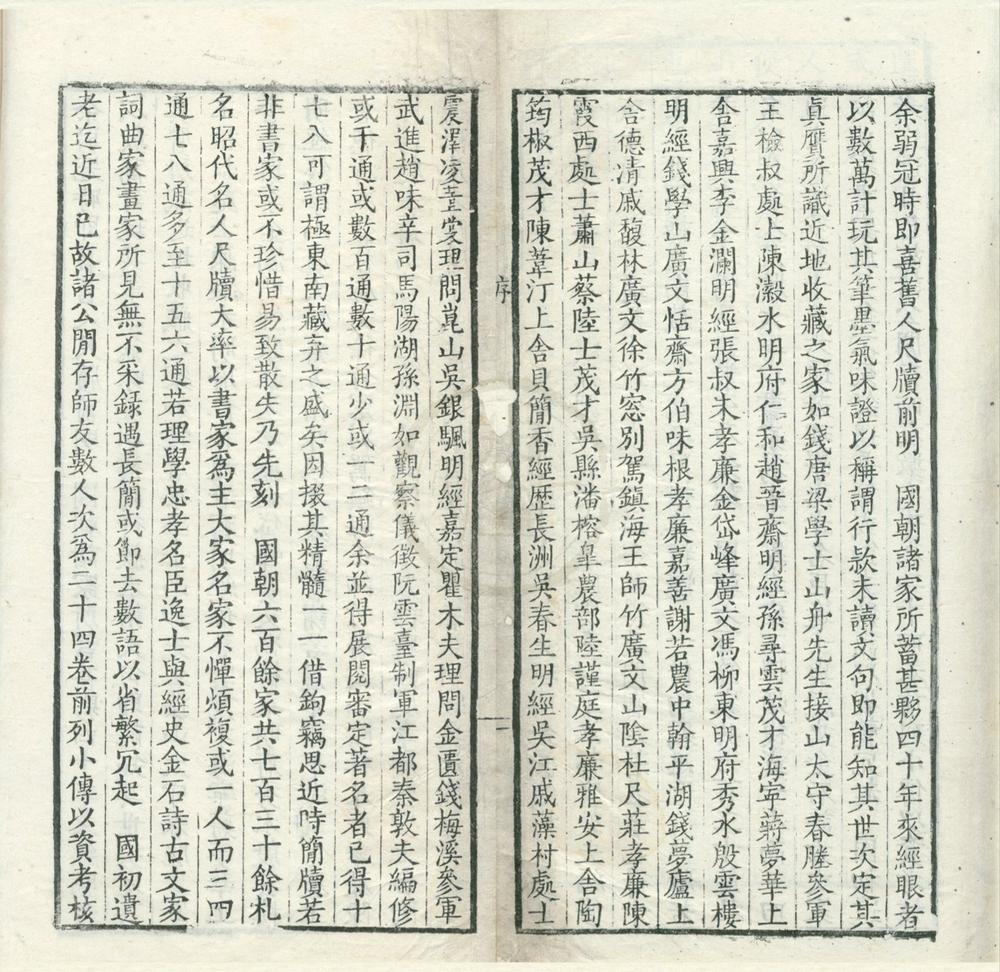 余弱冠時即喜舊人尺牘前明　國朝諸家所蓄甚夥四十年來經眼者
以數萬計玩其筆墨氣味證以稱謂行款未讀文句即能知其世次定其
眞贋所識近地收藏之家如錢唐梁學士山舟先生接山太守春塍參軍
王檢叔處士陳瀔水明府仁和趙晉齋明經孫尋雲茂才海寧蔣夢華上
舍嘉興李金瀾明經張叔未孝廉金岱峰廣文馮柳東明府秀水殷雲樓
明經錢學山廣文恬齋方伯味根孝廉嘉善謝若農中翰平湖錢夢廬上
舍德清戚馥林廣文徐竹窓別駕鎮海王師竹廣文山陰杜尺莊孝廉陳
霞西處士蕭山蔡陸士茂才吳縣潘榕皐農部陸謹庭孝廉雅安上舍陶
筠椒茂才陳葦汀上舍貝簡香經歷長洲吳春生明經吳江戚藻村處士
序
一
震澤凌臺堂理問崑山吳銀颿明經嘉定瞿木夫理問金匱錢梅溪參軍
武進趙味辛司馬陽湖孫淵如觀察儀徵阮雲臺制軍江都秦敦夫編修
或千通或數百通數十通少或一二通余並得展閱審定著名者已得十
七八可謂極東南藏弆之盛矣因掇其精髓一一借鉤竊思近時簡牘若
非書家或不珍惜易致散失乃先刻　國朝六百餘家共七百三十餘札
名昭代名人尺牘大率以書家爲主大家名家不憚煩複或一人而三四
通七八通多至十五六通若理學忠孝名臣逸士與經史金石詩古文家
詞曲家畫家所見無不采錄遇長簡或節去數語以省繁冗起　國初遺
老迄近日已故諸公閒存師友數人次爲二十四卷前列小傳以資考核